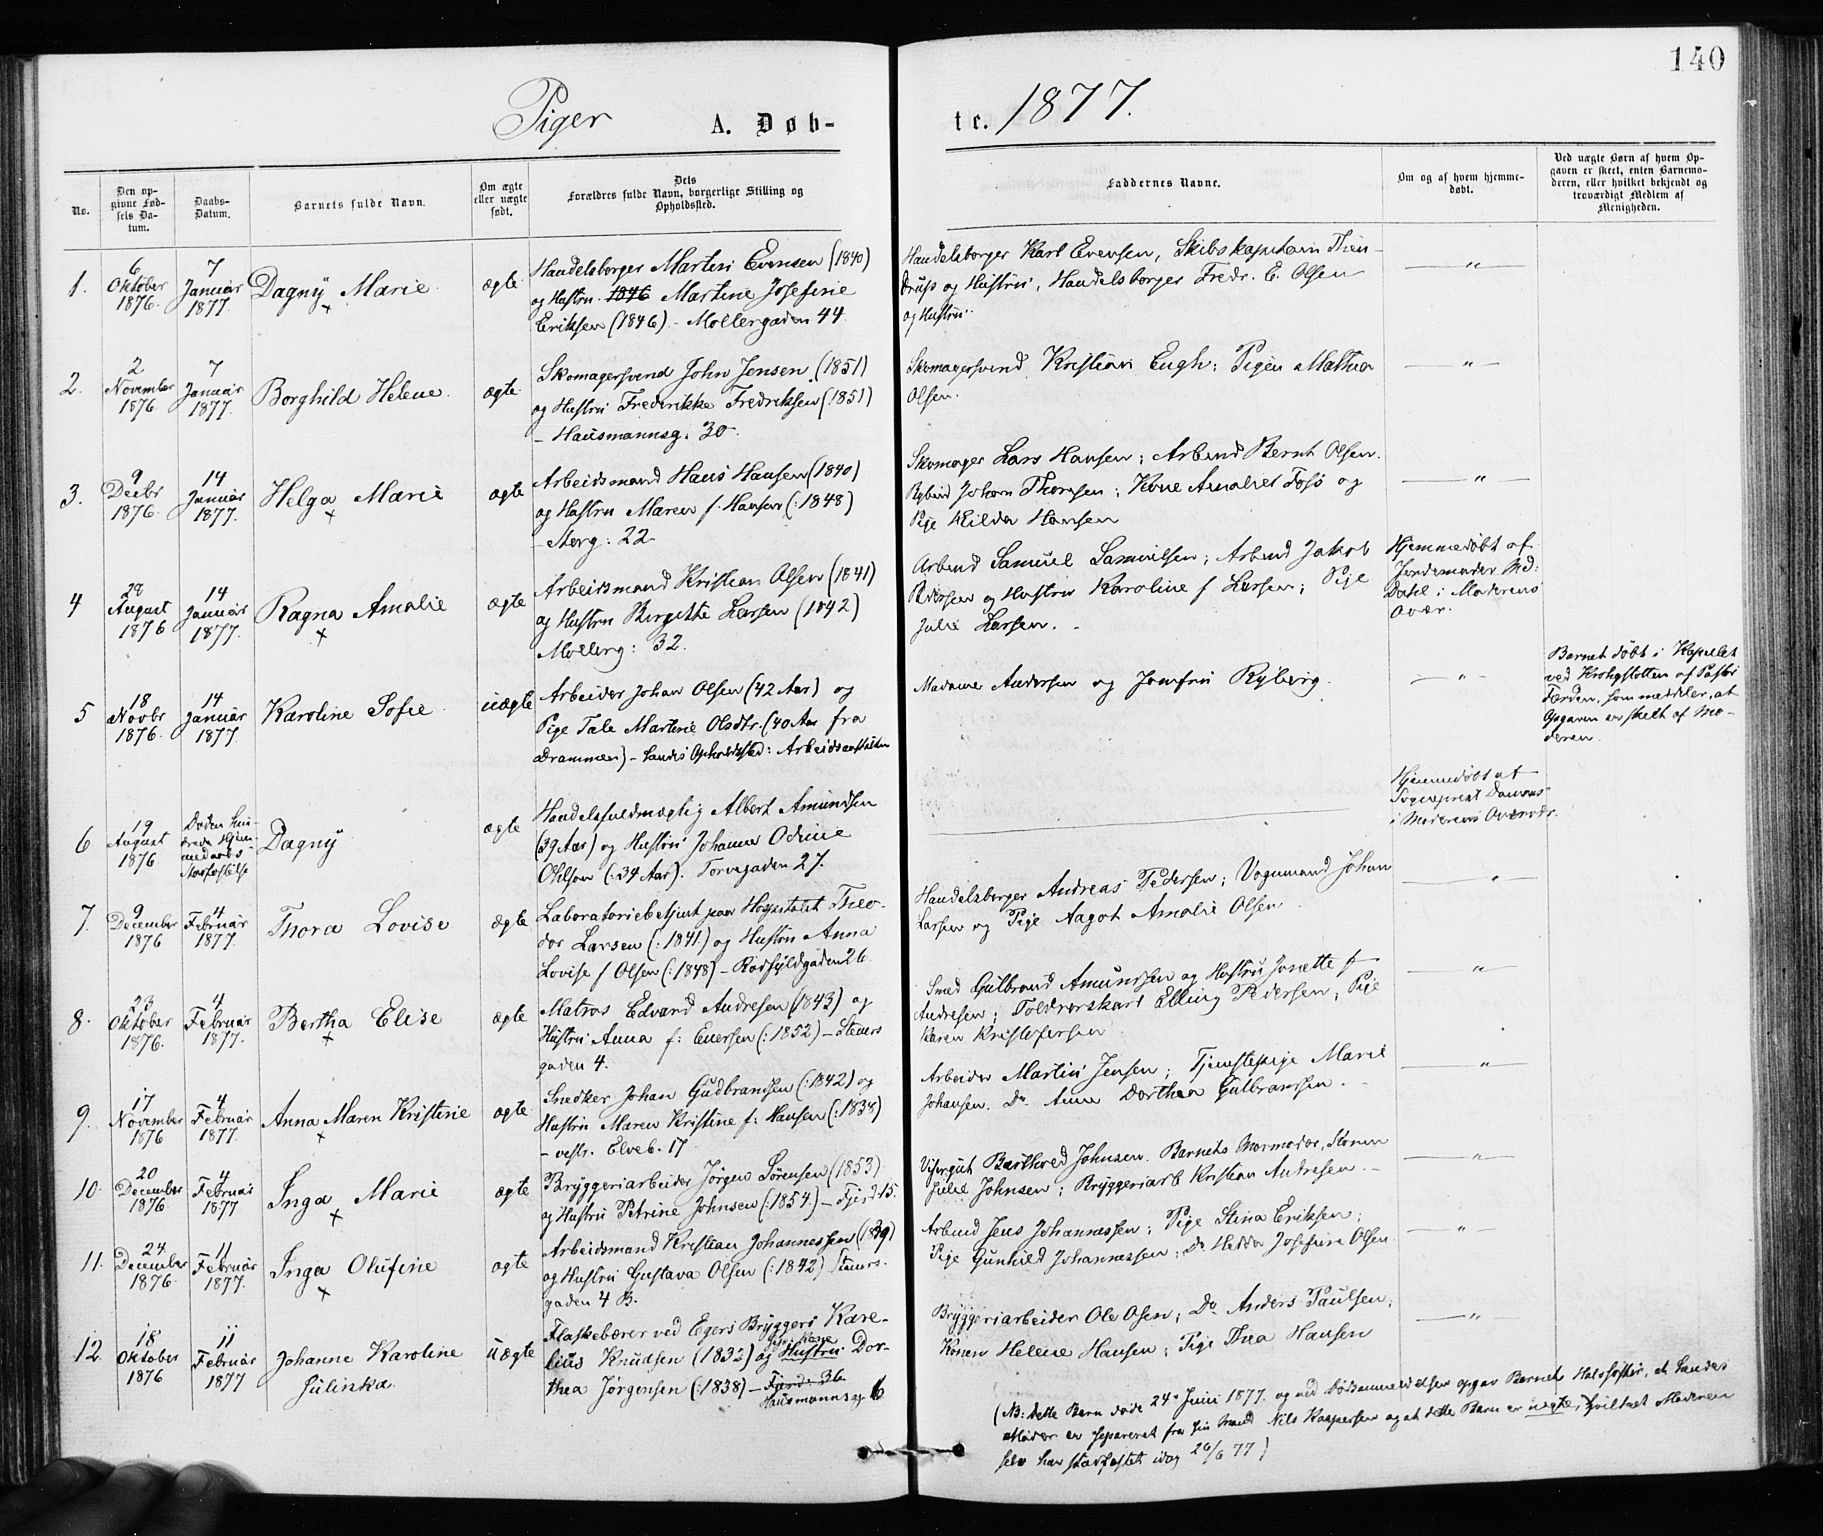 140
Piger A. Døb-
te. 1877.
No.
Den op-
givne Fød-
sels Da-
tum.
Daabs-
Datum.
Barnets fulde Navn.
Om ægte
eller uægte
født.
Dets
Forældres fulde Navn, borgerlige Stilling og
Opholdssted.
Faddernes Navne.
Om og af hvem hjemme-
døbt.
Ved uægte Børn af hvem Op-
gaven er skeet, enten Barnemo-
deren, eller hvilket bekjendt og
troværdigt Medlem af
Menigheden.
1.
6
Oktober
1876.
7
Januar
1877.
Dagny Marie
ægte
Handelsborger Martin Evensen (1840)
og Hustru 1846 Martine Josefine
Eriksen (1846) - Møllergaden 44
Handelsborger Karl Evensen, Skibskaptain
og Hustru, Handelsborger Fredr. E. Olsen
og Hustru.
— " —
2.
2
November
1876.
7
Januar
1877.
Borghild Helene.
ægte
Skomagersvend John Jensen (1851)
og Hustru Frederikke Fredriksen (1851)
- Hausmannsg. 30.
Skomagersvend Kristian Engh; Pigen Mathea
Olsen.
— " —
3.
9
Decbr
1876.
14
Januar
1877.
Helga Marie
ægte
Arbeidsmand Hans Hansen (1840)
og Hustru Maren f. Hansen (:1848)
- Storg: 22
Skomager Lars Hansen; Arbmd Bernt Olsen.
Johan Thoresen; Kone Amalie Fosø og
Pige Hilda Hansen
— " —
4
28
August
1876
14
Januar
1877.
Ragna Amalie
ægte
Arbeidsmand Kristian Olsen (1841)
og Hustru Birgitte Larsen (1842)
Møllerg: 32.
Arbmd Samuel Samuelsen; Arbmd Jakob
Pedersen og Hustru Karoline f Larsen; Pige
Julie Larsen.
Hjemmedøbt af
Jordemoder Md:
Dahl i Moderens
Overvær.
5
18
Novbr
1876.
14
Januar
1877.
Karoline Sofie
uægte
Arbeider Johan Olsen (42 Aar) og
Pige Tale Martine Olsdtr. (40 Aar fra
Drammen) - Opholdssted: Arbeidsanstalten
Madame Andersen og Jomfru Ryberg.
— " —
Barnet døbt i Kapellet
ved Krohgstøtten af Pastor
Færden, som meddeler, at
Opgaven er skeet af Mo-
deren.
6
19
August
1876
Døden hin-
drede Hjem-
medaabs
Stadfæstelse
Dagny
ægte
Handelsfuldmægtig Albert Amundsen
(39 Aar) og Hustru Johanne Odine
Ohlson (:34 Aar). Torvegaden 27.
Hjemmedøbt af
Sogneprest
i Moderens Overvær.
7.
9
December
1876
4
Februar
1877.
Thora Lovise
ægte
Laboratoriebetjent paa Hospitalet Theo-
dor Larsen (:1841.) og Hustru Anna
Lovise f Olsen (:1848) - Rødfyldgaden 26
Handelsborger Andreas Pedersen; Vognmand Johan
Larsen og Pige Aagot Amalie Olsen
— " —
8.
23
Oktober
1876.
4
Februar
1877.
Bertha Elise
ægte
Matros Edvard Andresen (1843) og
Hustru Anna f: Enersen (:1852) - Steners
gaden 4.
Smed Gulbrand Amundsen og Hustru Jonette f
Andresen; Toldrorskarl Elling Pedersen; Pige
Karen Kristofersen
— " —
9.
17
November
1876
4
Februar
1877.
Anna Maren Kristine
ægte
Snedker Johan Gudbrandsen (:1842) og
Hustru Maren Kristine f: Hansen (:1838)
- vestr. Elveb. 17
Arbeider Martin Jensen; Tjenstepige Marie
Johansen. Do Anne Dorthea Gulbransen.
— " —
10.
20
December
1876.
4
Februar
1877
Inga Marie
ægte
Bryggeriarbeider Jørgen Sørensen (1853)
og Hustru Petrine Johnsen (:1854.) - Fjerd. 15.
Visergut Barthold Johnsen. Barnets Mormoder, Konen
Julie Johnsen; Bryggeriarb Kristian Andresen.
— " —
11.
24
December
1876.
11
Februar
1877.
Inga Olufine
ægte
Arbeidsmand Kristian Johannessen (1839)
og Hustru Gustava Olsen (:1842) Steners-
gaden 4 B.
Arbmd Jens Johannessen; Pige Stina Eriksen;
Pige Gunhild Johannessen; Do Hedda Josefine Olsen
— " —
12
18
Oktober
1876
11
Februar
1877
Johanne Karoline
Juliska
uægte
Flaskebærer ved Egers Bryggeri Kare-
lius Knudsen (1832) og Hustru Dor-
thea Jørgensen (:1838) - Fjerd: 36
Hausmannsg. 6
Bryggeriarbeider Ole Olsen; Do Anders Paulsen;
Konen Helene Hansen; Pige Thea Hansen
— " —
(NB: Dette Barn døde 24 Juni 1877. og ved Dødsanmeldelsen opgav Barnets Halvsøster, at
Moder er separeret fra sin Mand Nils Kaspersen og at dette Barn er uægte, hvilket Moderen
selv har stadfæstet idag 26/6 77)